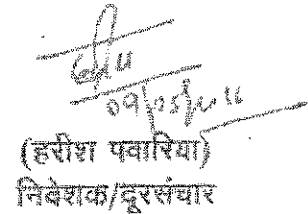 09/05/2016
(हरीश पवारिया)
निदेशक/दूरसंचार